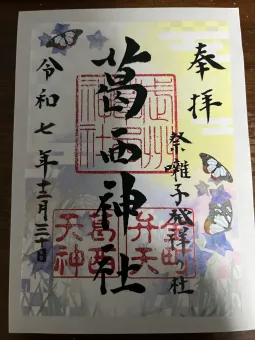 奉拝
祭囃子発祥の社
葛西神社
令和七年十二月三十日
金町
弁天
葛西
天神